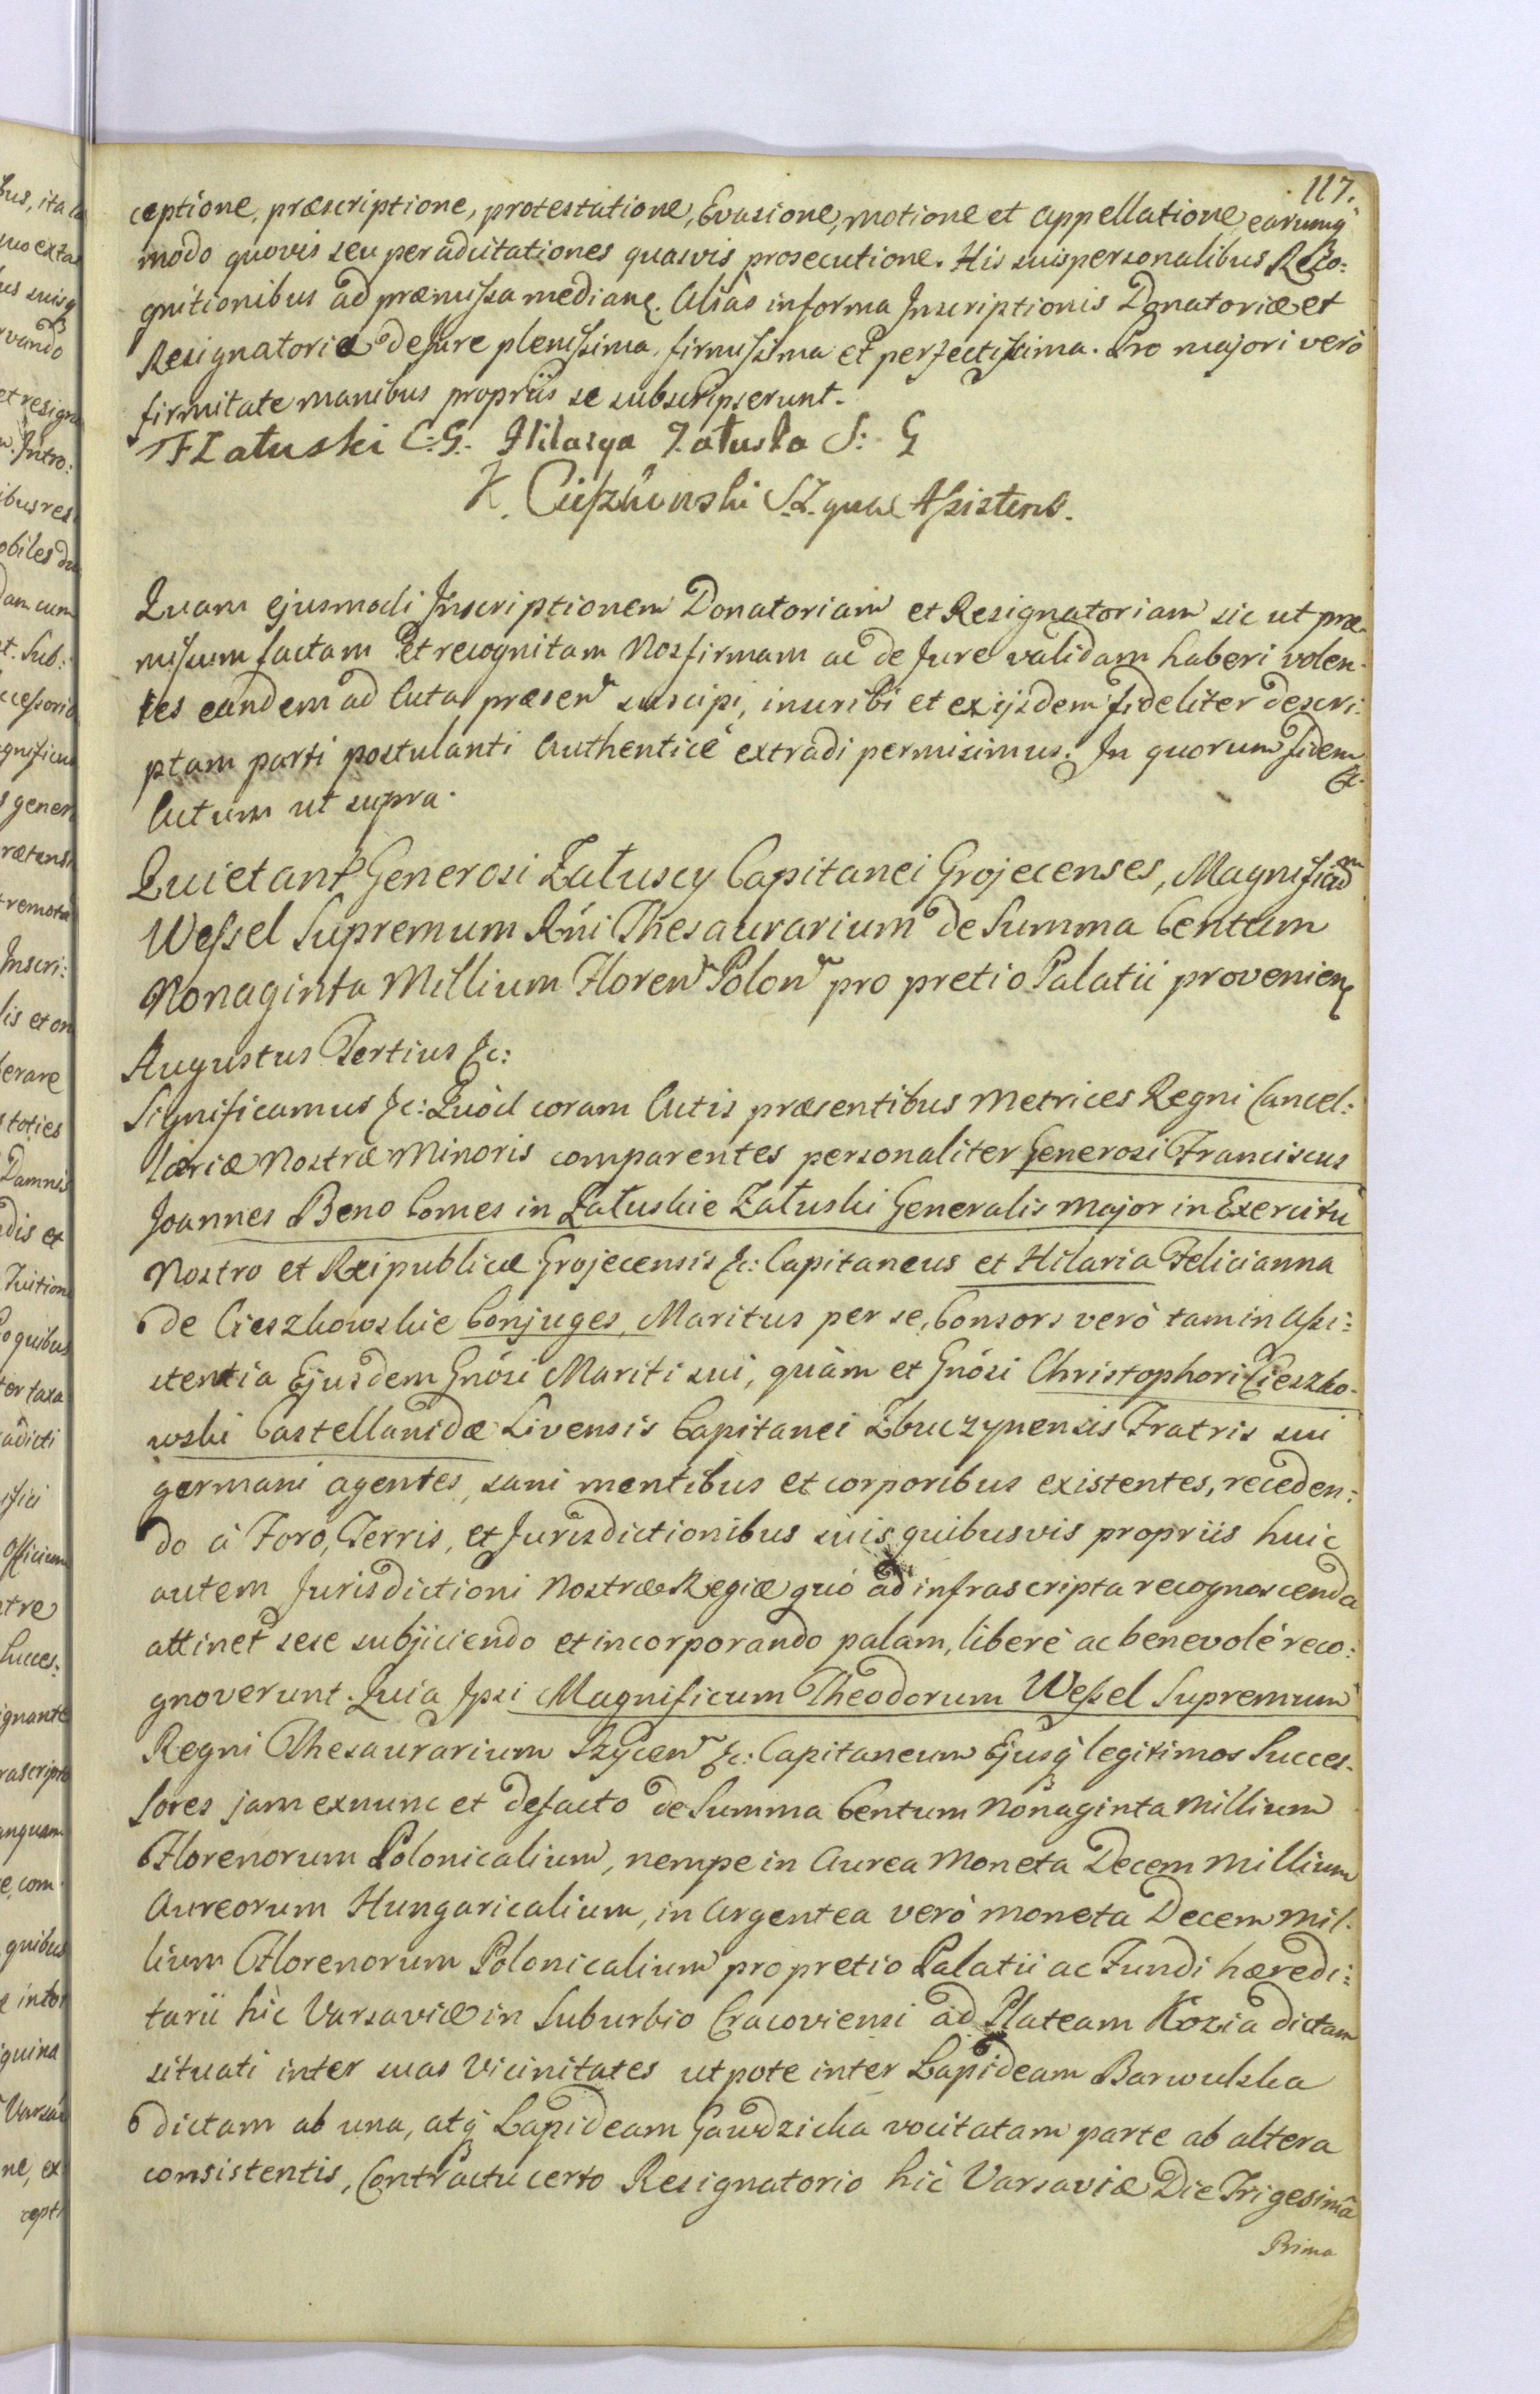 117.
ceptione, præscriptione, protestatione, Evasione, motione et appellatione, earumq
modo quovis seu per adcitationes quasvis prosecutione. His suis personalibus Reco:
gnitionibus ad præmissa median. Aliàs in forma Inscriptionis Donatoriæ et
Resignatoriæ de Jure plenissima, firmissima et perfectissima. Pro majori verò
firmitate manibus propriis se subscripserunt.
FZałuski C:G. Hilarya Załuska S: G
K. Cieszkowski S.Z. qua Assistens.
Quam ejusmodi Inscriptionem Donatoriam et Resignatoriam sic ut præ-
missum factam et recognitam Nos firmam ac de Jure validam haberi volen-
tes eandem ad Acta præsen suscipi, inscribi et ex ijsdem fideliter descri:
ptam parti postulanti Authenticè extradi permisimus. In quorum fidem &.
Actum ut supra.
Quietant Generosi Załuscy Capitanei Grojecenses, Magnificum
Wessel Supremum Rńi Thesaurarium de Summa Centum
Nonaginta Millium Floren Polon pro pretio Palatii provenien
Augustus Tertius &c:
Significamus &c: Quòd coram Actis præsentibus Metrices Regni Cancel:
lariæ Nostræ Minoris comparentes personaliter Generosi Franciscus
Joannes Beno Comes in Załuskie Załuski Generalis Major in Exercitu
Nostro et Reipublicæ Grojecensis &c: Capitaneus et Hilaria Felicianna
de Cieszkowskie Conjuges, Maritus per se, Consors verò tam in Assi:
stentia Ejusdem Gnósi Mariti sui, quàm et Gnósi Christophori Cieszko-
wski Castellanidæ Livensis Capitanei Zbuczynensis Fratris sui
germani agentes, sani mentibus et corporibus existentes, receden:
do à Foro, Terris, et Jurisdictionibus suis quibusvis propriis huic
autem Jurisdictioni Nostræ Regiæ quò ad infrascripta recognoscenda
attinet sese subjiciendo et incorporando palam, liberè ac benevolè reco:
gnoverunt. Quia Ipsi Magnificum Theodorum Wessel Supremum
Regni Thesaurarium Szycen &c: Capitaneum Ejusq legitimos Succes-
sores jam exnunc et defacto de Summa Centum Nonaginta Millium
Florenorum Polonicalium, nempe in Aurea Moneta Decem Millium
Aureorum Hungaricalium, in Argentea verò moneta Decem Mil-
lium Florenorum Polonicalium pro pretio Palatii ac Fundi hæredi:
tarii hìc Varsaviæ in Suburbio Cracoviensi ad Plateam Kozia dictam
situati inter suas Vicinitates utpote inter Lapideam Barwulska
dictam ab una, atq Lapideam Gawdzicka vocitatam parte ab altera
consistentis, Contractu certo Resignatorio hìc Varsaviæ Die Trigesimâ
Prima